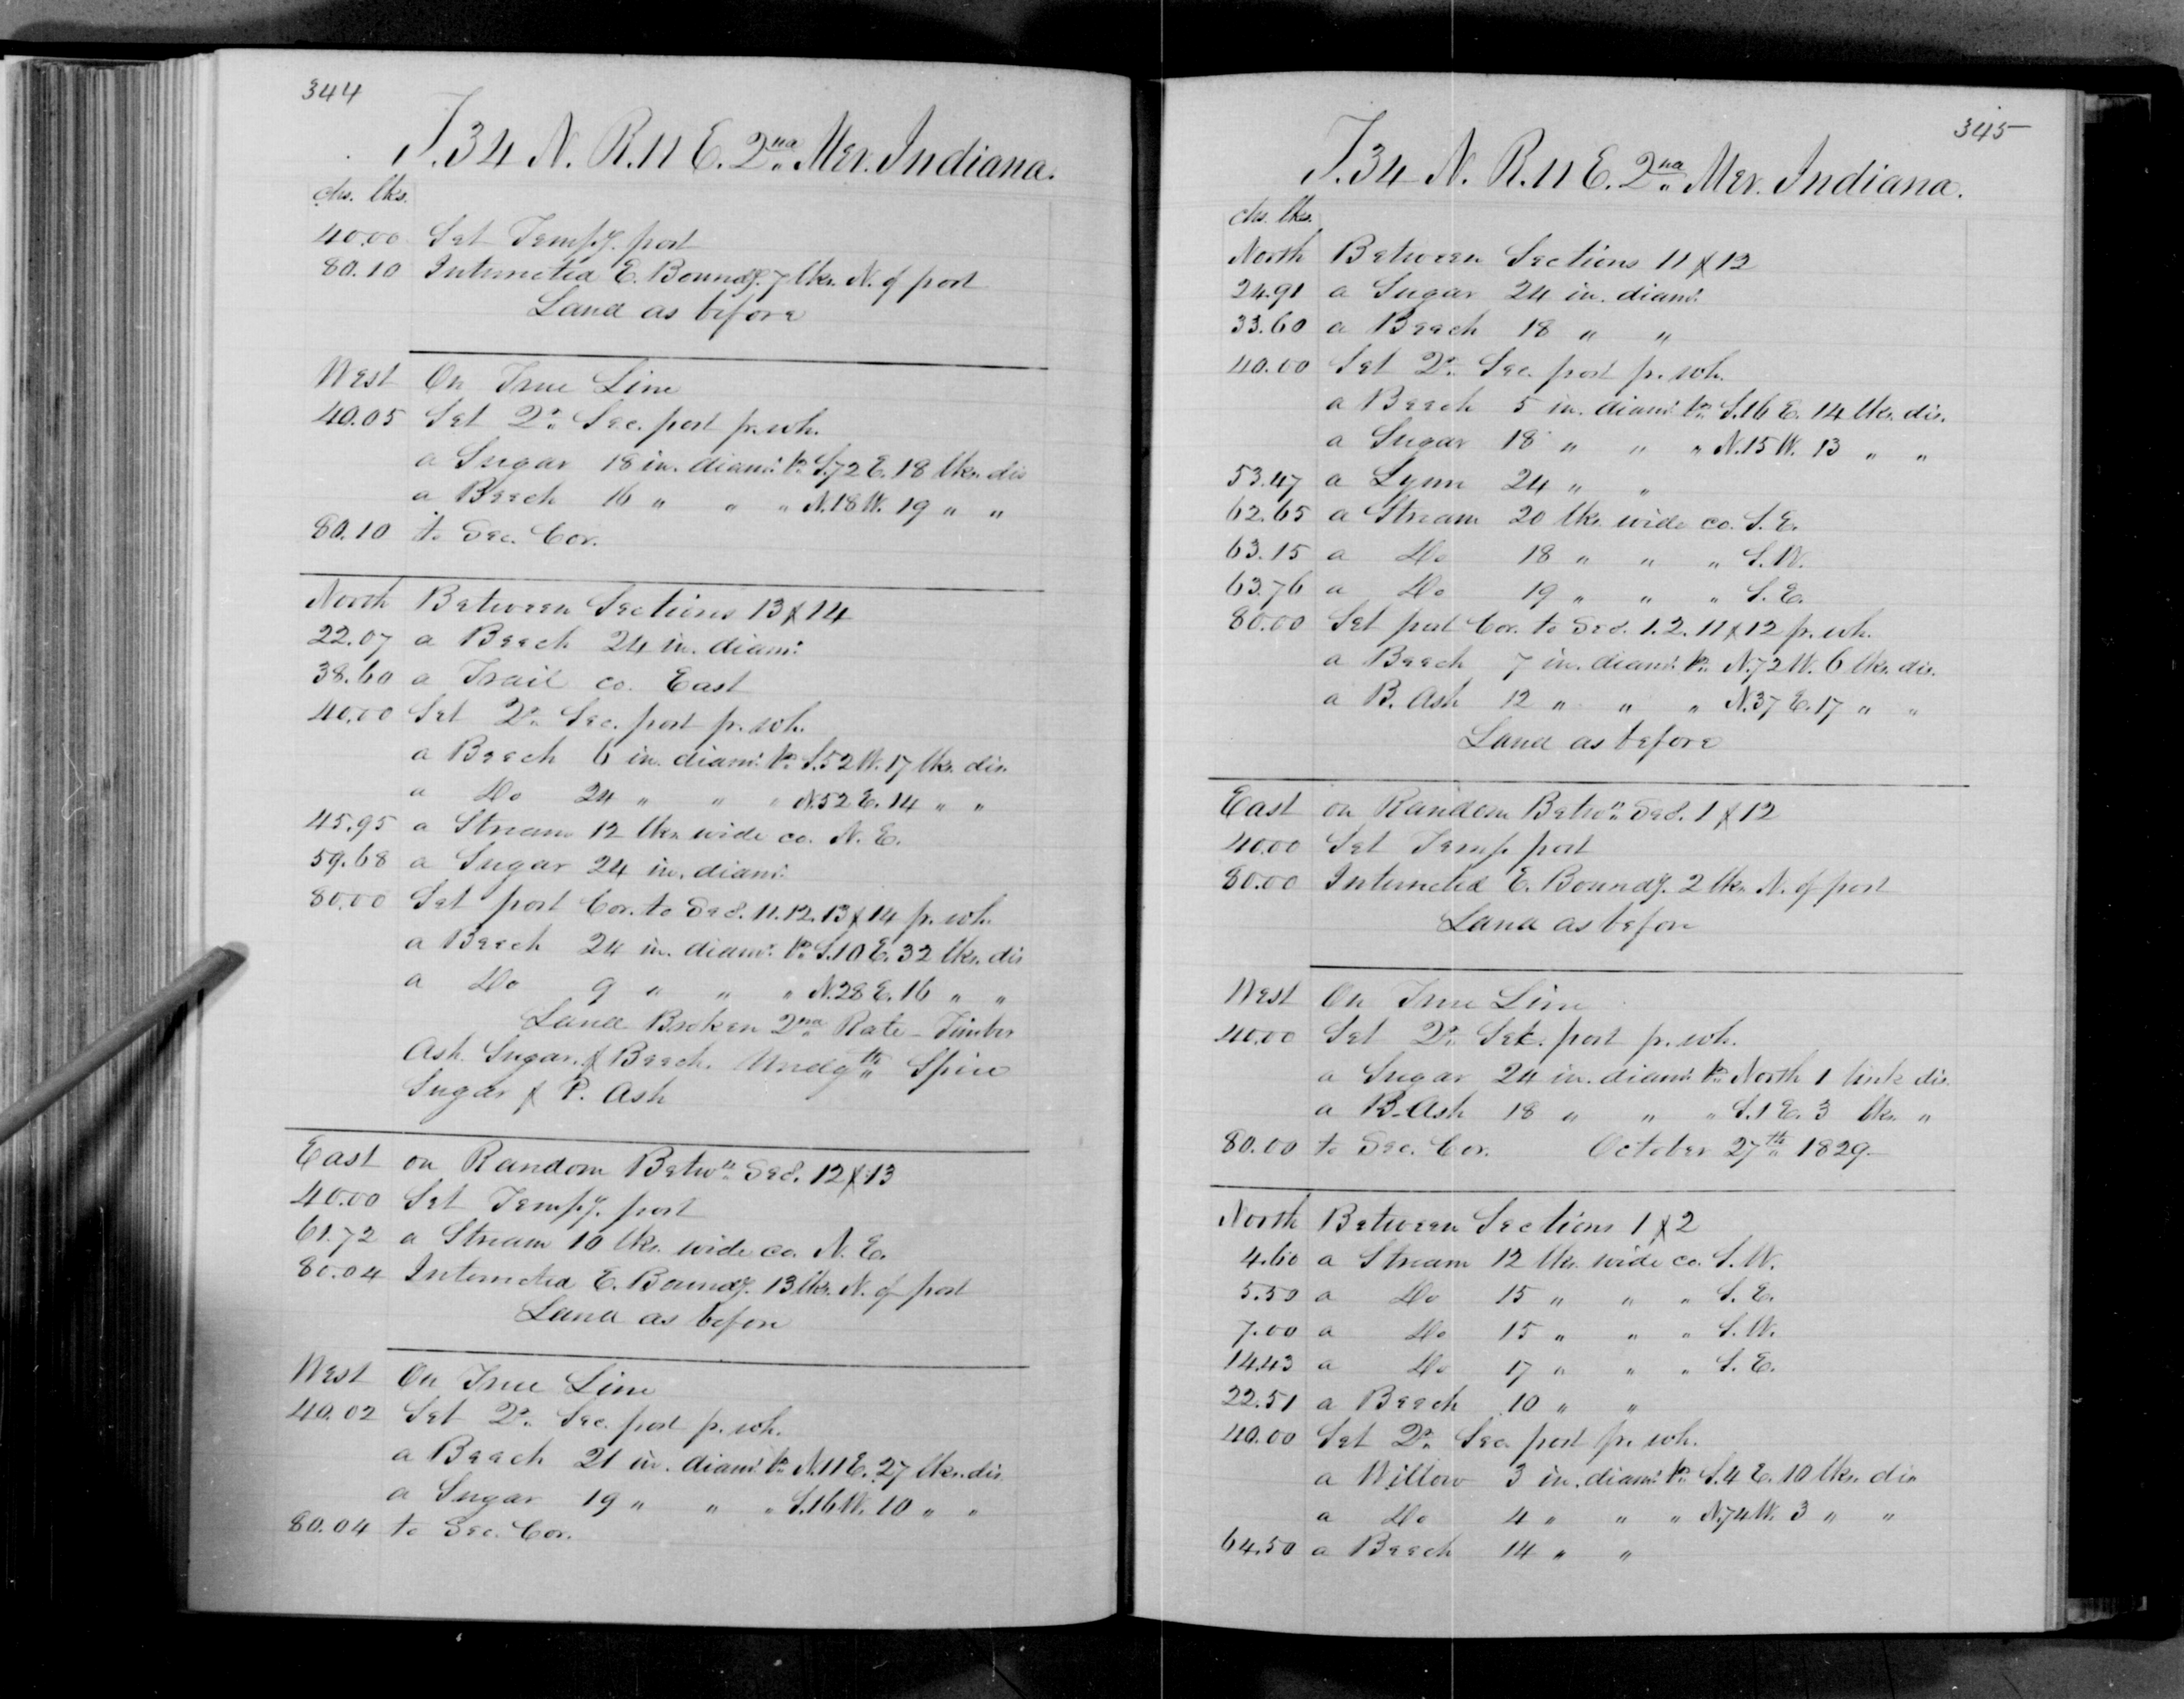 344
T. 34 N. R. 11 E. 2nd Mer. Indiana.
chs. lks.
40.00 Set Tempy. post
80.10 Intersected E. Boundy. 7 lks. N. of post
Land as before
West On True Line
40.05 Set Qr. Sec. post pr. wh.
a Sugar 18 in. diamr. br. S. 72 E. 18 lks. dis
a Beech 16 " " " N. 18 W. 19 " "
80.10 to Sec. Cor.
North Between Sections 13 & 14
22.07 a Beech 24 in. diamr.
38.60 a Trail co. East
40.00 Set Qr. Sec. post pr. wh.
a Beech 6 in. diamr. br. S. 52 W. 17 lks. dis.
a Do 24 " " " N. 52 E. 14 " "
45.95 a Stream 12 lks wide co. N. E.
59.68 a Sugar 24 in. diamr.
80.00 Set post Cor. to Secs. 11. 12. 13 & 14 pr. wh.
a Beech 24 in. diamr. br. S. 10 E. 32 lks. dis
a Do 9 " " " N. 28 E. 16 " "
Land Broken 2nd Rate - Timber
Ash. Sugar. & Beech. Undgth. Spice
Sugar & P. Ash
East on Random Betwn. Secs. 12 & 13
40.00 Set Tempy. post
61.72 a Stream 10 lks. wide co. N. E.
80.04 Intersected E. Boundy. 13 lks. N. of post
Land as before
West On True Line
40.02 Set Qr. Sec. post pr. wh.
a Beech 21 in. diamr. br. N. 11 E. 27 lks. dis.
a Sugar 19 " " " S. 16 W. 10 " "
80.04 to Sec. Cor.
345
T. 34 N. R. 11 E. 2nd Mer. Indiana.
chs. lks.
North Between Sections 11 & 12
24.91 a Sugar 24 in. diamr.
33.60 a Beech 18 " "
40.00 Set Qr. Sec. post pr. wh.
a Beech 5 in. diamr. br. S. 16 E. 14 lks. dis.
a Sugar 18 " " " N. 15 W. 13 " "
53.47 a Lynn 24 " "
62.65 a Stream 20 lks. wide co. S. E.
63.15 a Do 18 " " " S. W.
63.76 a Do 19 " " " S. E.
80.00 Set post Cor. to Secs. 1. 2. 11 & 12 pr. wh.
a Beech 7 in. diamr. br. N. 72 W. 6 lks. dis.
a B. Ash 12 " " " N. 37 E. 17 " "
Land as before
East on Random Betwn. Secs. 1 & 12
40.00 Set Temp. post
80.00 Intersected E. Boundy. 2 lks. N. of post
Land as before
West On True Line
40.00 Set Qr. Sec. post pr. wh.
a Sugar 24 in. diamr. br. North 1 link dis.
a B. Ash 18 " " " S. 1 E. 3 lks. "
80.00 to Sec. Cor. October 27th. 1829.
North Between Sections 1 & 2
4.60 a Stream 12 lks. wide co. S. W.
5.50 a Do 15 " " " S. E.
7.00 a Do 15 " " " S. W.
14.43 a Do 17 " " " S. E.
22.51 a Beech 10 " "
40.00 Set Qr. Sec. post pr. wh.
a Willow 3 in. diamr. br. S. 4 E. 10 lks. dis
a Do 4 " " " N. 74 W. 3 " "
64.50 a Beech 14 " "